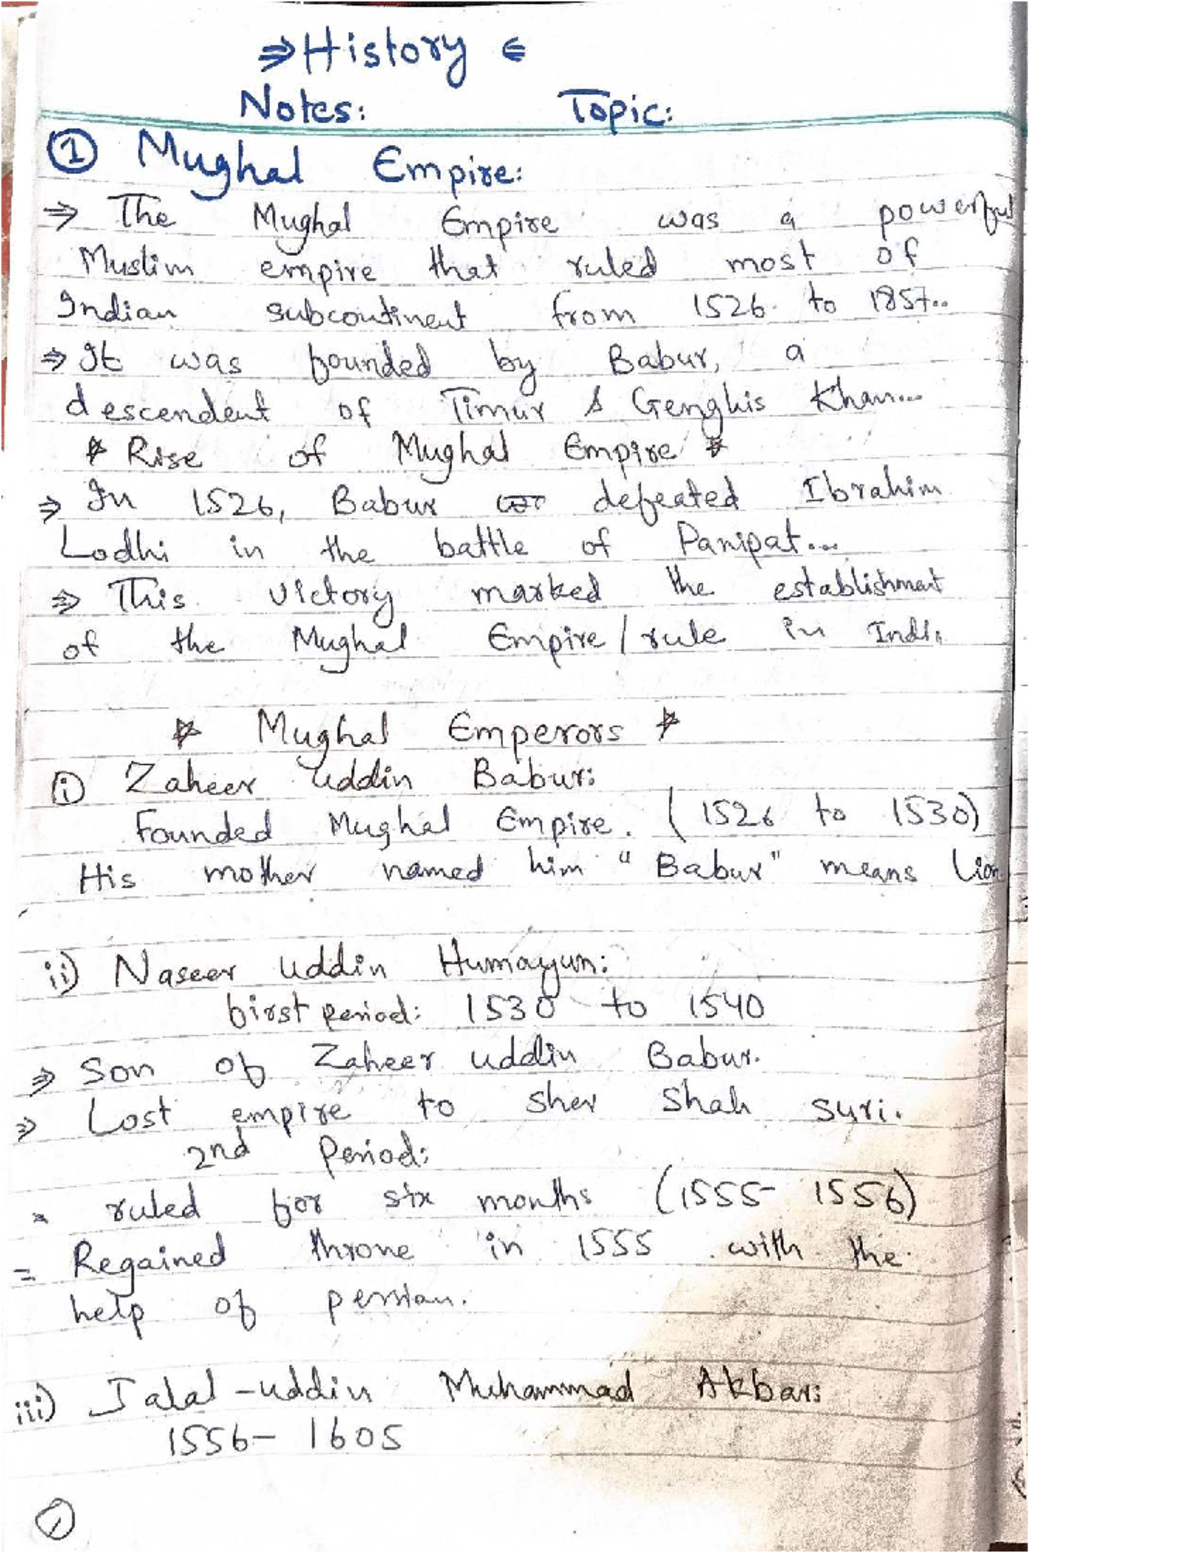 ⇒ History ⇐
Notes: Topic:
① Mughal Empire:
⇒ The Mughal Empire was a powerful
Muslim empire that ruled most of
Indian subcontinent from 1526 to 1857..
⇒ It was founded by Babur, a
descendent of Timur & Genghis Khan...
* Rise of Mughal Empire *
⇒ In 1526, Babur defeated Ibrahim
Lodhi in the battle of Panipat...
⇒ This victory marked the establishment
of the Mughal Empire/rule in Indi
* Mughal Emperors *
i) Zaheer uddin Babur:
Founded Mughal Empire. (1526 to 1530)
His mother named him "Babur" means Lion
ii) Naseer uddin Humayun:
first period: 1530 to 1540
⇒ Son of Zaheer uddin Babur.
⇒ Lost empire to Sher Shah Suri.
2nd Period:
= ruled for six months (1555- 1556)
= Regained throne in 1555 with the
help of persian.
iii) Jalal-uddin Muhammad Akbar:
1556- 1605
1